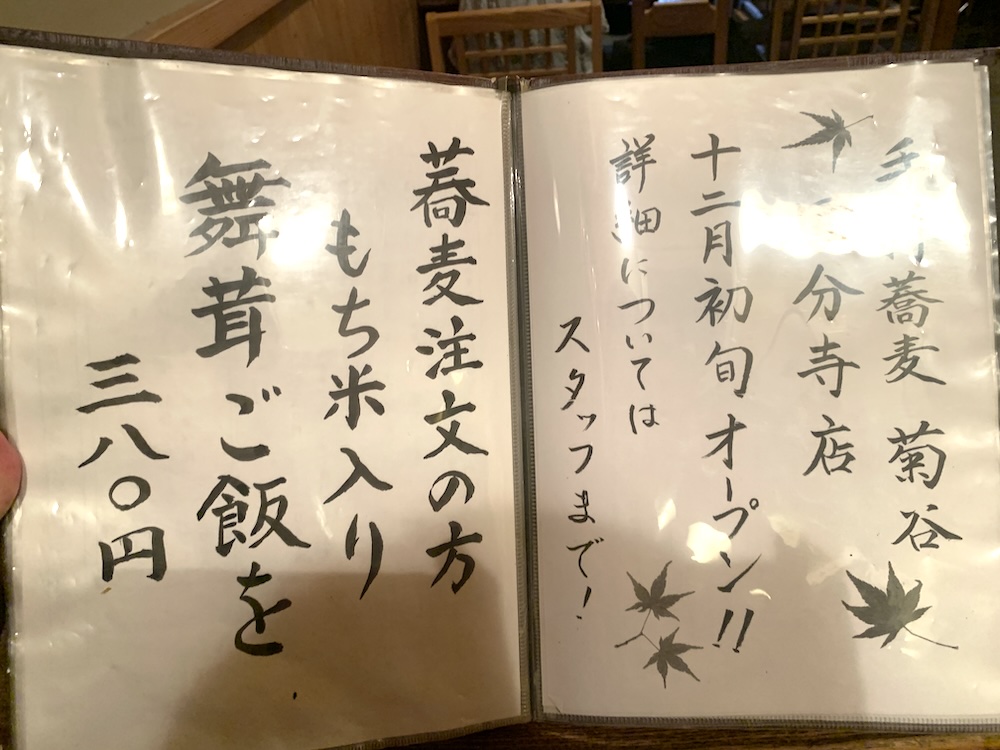 手打蕎麦 菊谷
分寺店
十二月初旬オープン!!
詳細については
スタッフまで!
蕎麦注文の方
もち米入り
舞茸ご飯を
三八〇円